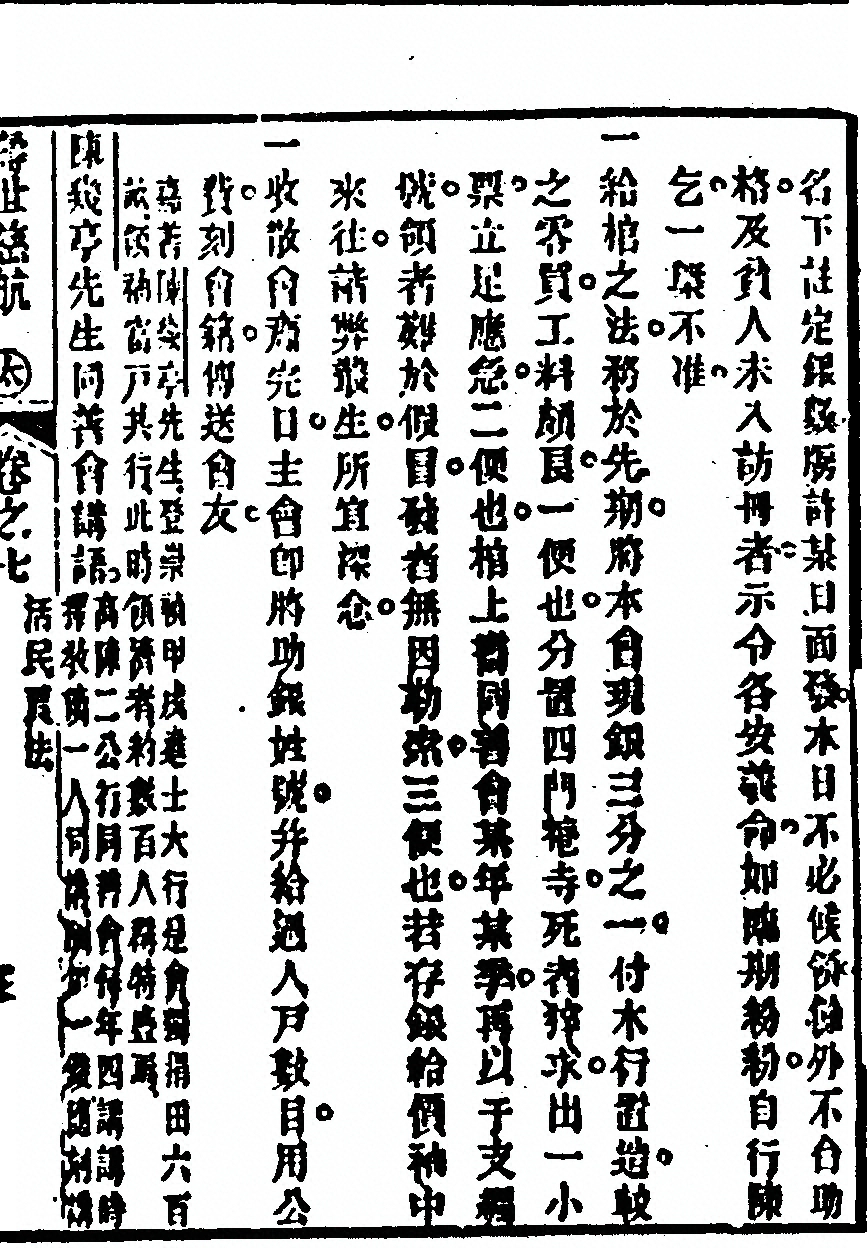 名下註定銀數勝許某日面發本日不必候領餘外不合助
格及貧人未入訪冊者示令各安義命如臨期紛紛自行陳
乞一槩不准
一給棺之法務於先期將本會現銀三分之一付木行置造較
之零買工料頗良一便也分置四門菴寺死者猝求出一小
票立足應急二便也棺上書同善會某年某季再以干支編
號領者難於假冒發者無因勒索三便也若存銀給價袖中
來往諸弊叢生所宜深念
一收散會畢先日主會即將助銀姓號并給過人戶數目用公
費刻會籍傳送會友
嘉善陳幾亭先生登崇禎甲戌進士大行是會獨捐田六百
畝領袖富戶共行此時領濟者約數百人群特盛焉
陳幾亭先生同善會講語
高陳二公行同善會每年四講講時
擇敎一人同講一
活民農法
卷之七